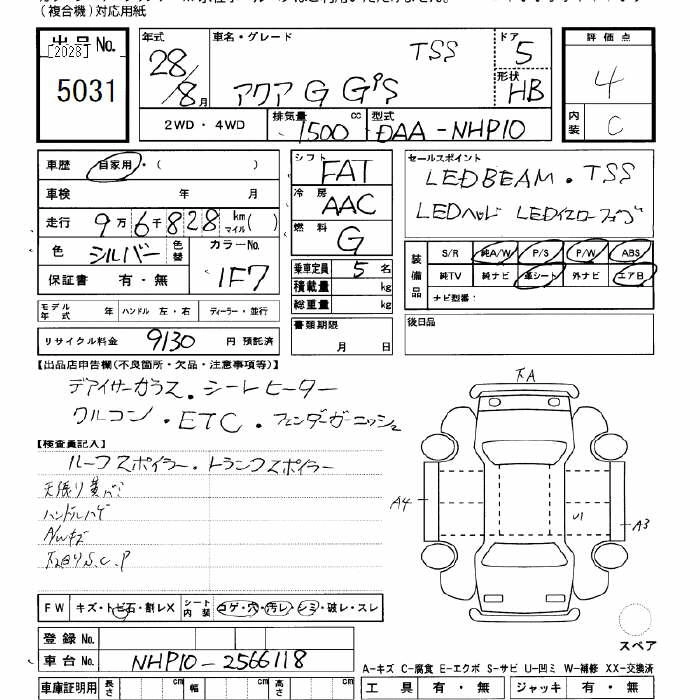 (複合機)対応用紙
出品No.
[2028]
5031
年式
28/8月
車名・グレード
TSS
アクア G G's
ドア
5
形状
HB
2WD・4WD
排気量
1500cc
型式
DAA-NHP10
評価点
4
内装
C
車歴 自家用・( )
車検 年 月
走行 9万6千828 km マイル( )
色 シルバー 色替
カラーNo.
1F7
保証書 有・無
モデル年式 年 ハンドル 左・右 ディーラー・並行
リサイクル料金 9130 円 預託済
シフト
FAT
冷房
AAC
燃料
G
乗車定員 5 名
積載量 kg
総重量 kg
書類期限
月 日
セールスポイント
LEDBEAM・TSS
LEDヘッド LEDイエローフォグ
装備品
S/R 純A/W P/S P/W ABS
純TV 純ナビ 革シート 外ナビ エアB
ナビ型番:
後日品
【出品店申告欄(不良箇所・欠品・注意事項等)】
デアイサーガラス・シートヒーター
クルコン・ETC・フェンダーガーニッシュ
【検査員記入】
ルーフスポイラー・トランクスポイラー
天張り黄バミ
ハンドルハゲ
AWキズ
下回りS.C.P
下A
A4
U1
A3
スペア
FW キズ・トビ石・割レX シート内装 コゲ・穴・汚レ・シミ・破レ・スレ
登録No.
車台No. NHP10-2566118
車庫証明用 長さ cm 幅 cm 高さ cm
A-キズ C-腐食 E-エクボ S-サビ U-凹ミ W-補修 XX-交換済
工具 有・無 ジャッキ 有・無